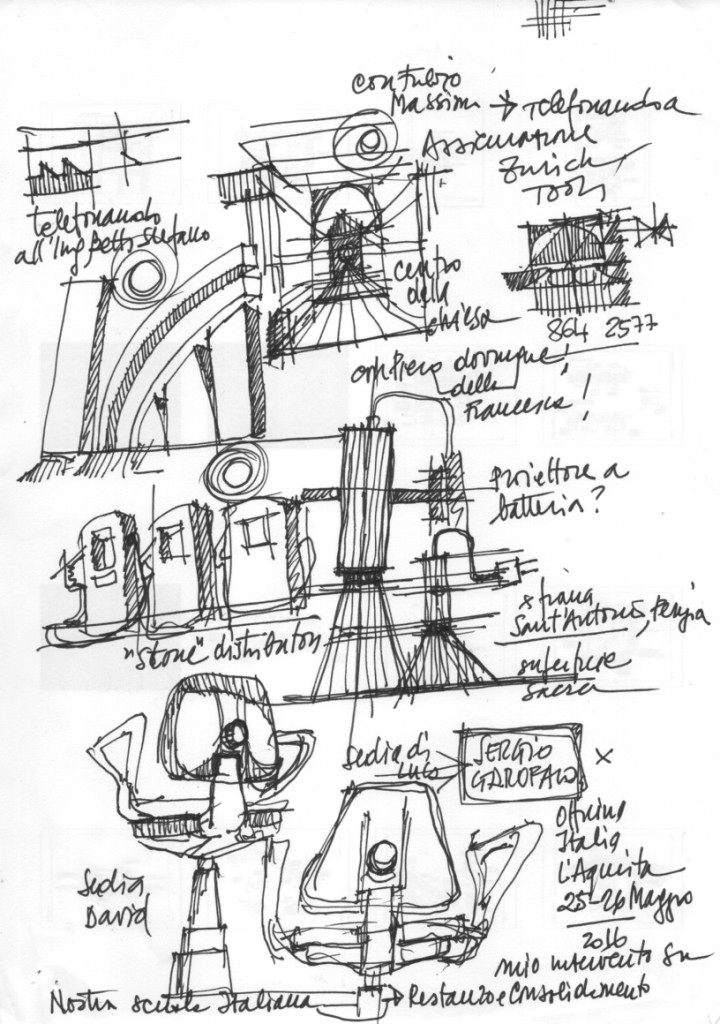 con Fulvio
Massimi → Telefonando a
Assicurazione
Zurich
telefonando
all'Ing Betti Stefano
centro
della
chiesa
864 2577
dovunque!
della
Francesca!
Proiettore a
batteria?
Sant'Antonio, Perugia
superfice
sacra
"Stone" distributori
Sedia di
Luca
SERGIO
GAROFALO
×
Officina
Italia
L'Aquila
25-26 Maggio
2016
mio intervento su
Restauro e Consolidamento
Sedia
David
Nostra Italiana